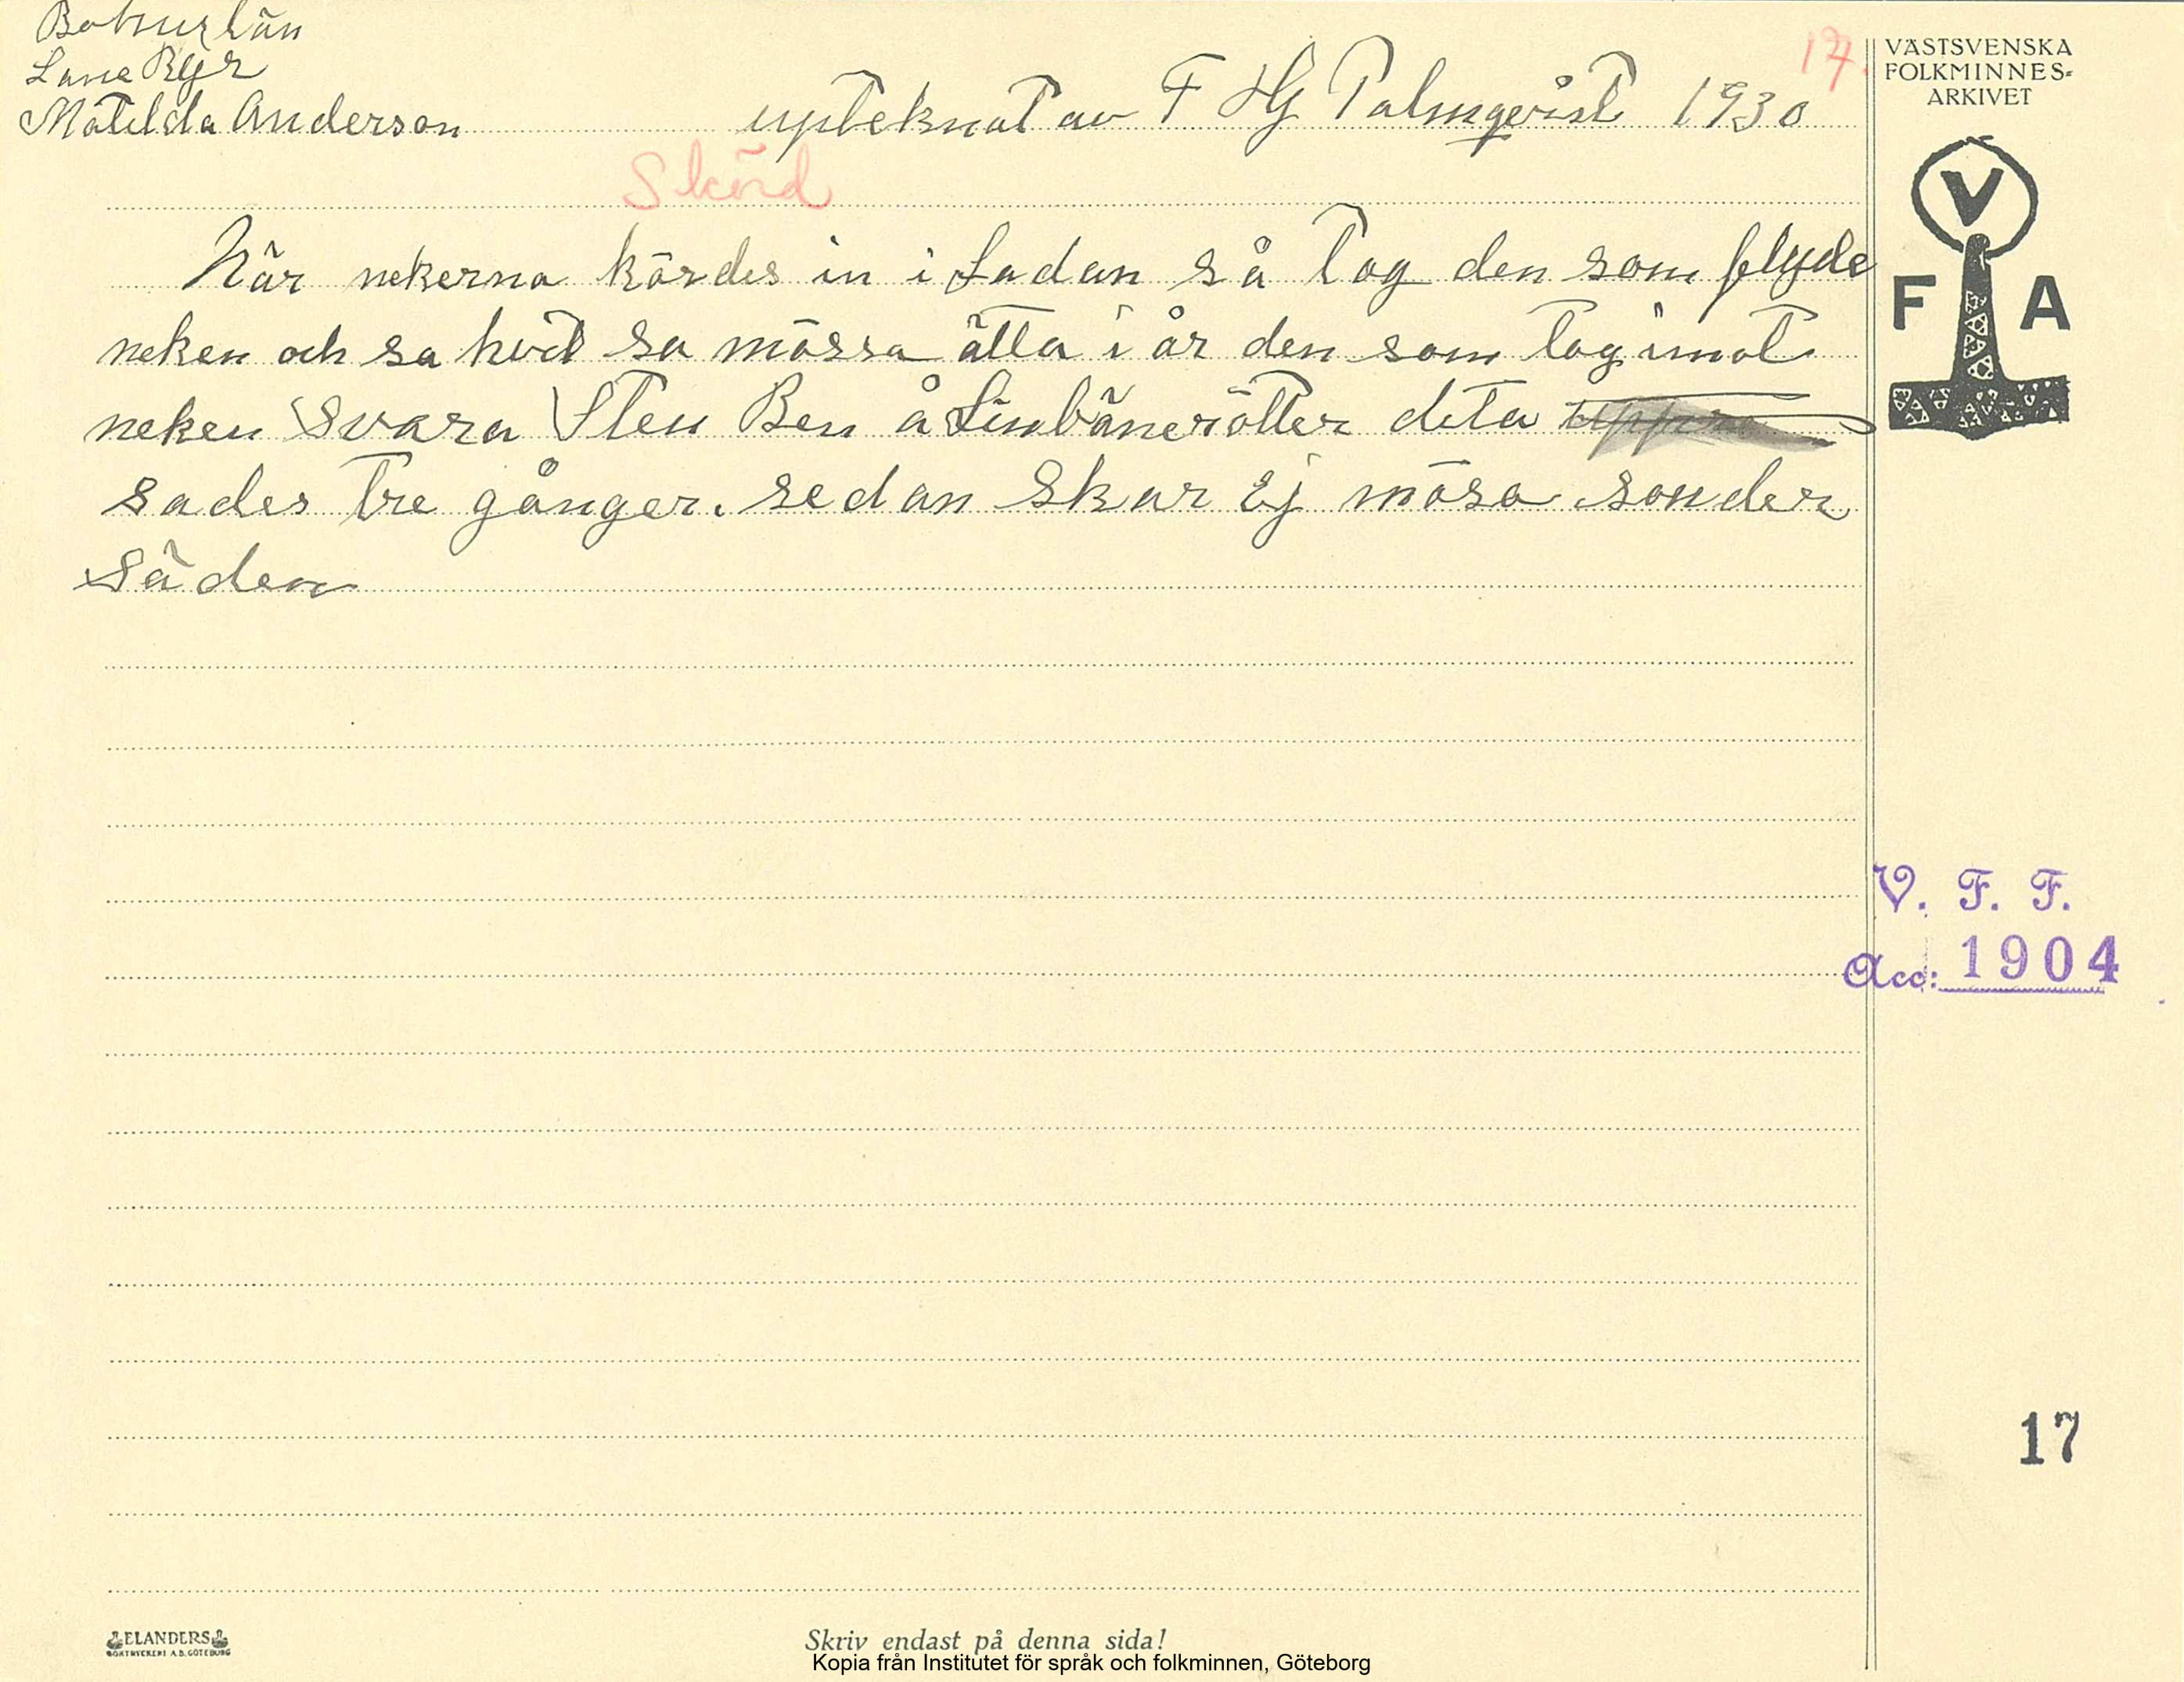 Bohuslän
Lane Ryr
Matilda Anderson
upteknat av F Hj Palmqvist 1930
17.
Skörd
När nekerna kördes in i Ladan så tog den som flyde
neken och sa hvd sa mössa ätta i år den som tog imot
neken Svara Sten Ben å Linbänerötter deta
sades tre gånger. sedan skar Ej mösa sonder
säden
VÄSTSVENSKA
FOLKMINNES-
ARKIVET
V
F A
V. F. F.
Acc: 1904
17
ELANDERS
BOKTRYCKERI A.B. GÖTEBORG
Skriv endast på denna sida!
Kopia från Institutet för språk och folkminnen, Göteborg